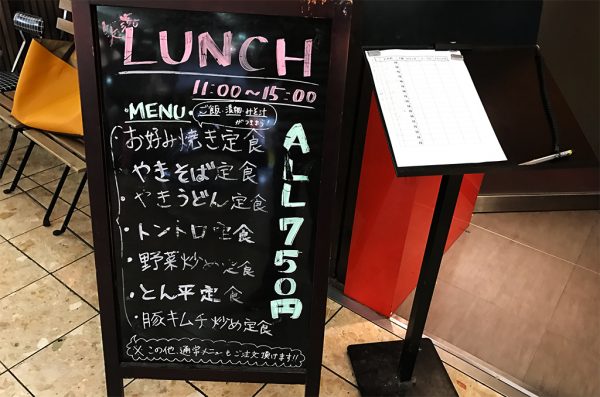 LUNCH
11:00〜15:00
・MENU・
ご飯・漬物・みそ汁
がつきます!
お好み焼き定食
・やきそば定食
・やきうどん定食
・トントロ定食
・野菜炒め定食
・とん平定食
・豚キムチ炒め定食
ALL750円
※この他、通常メニューもご注文頂けます!!